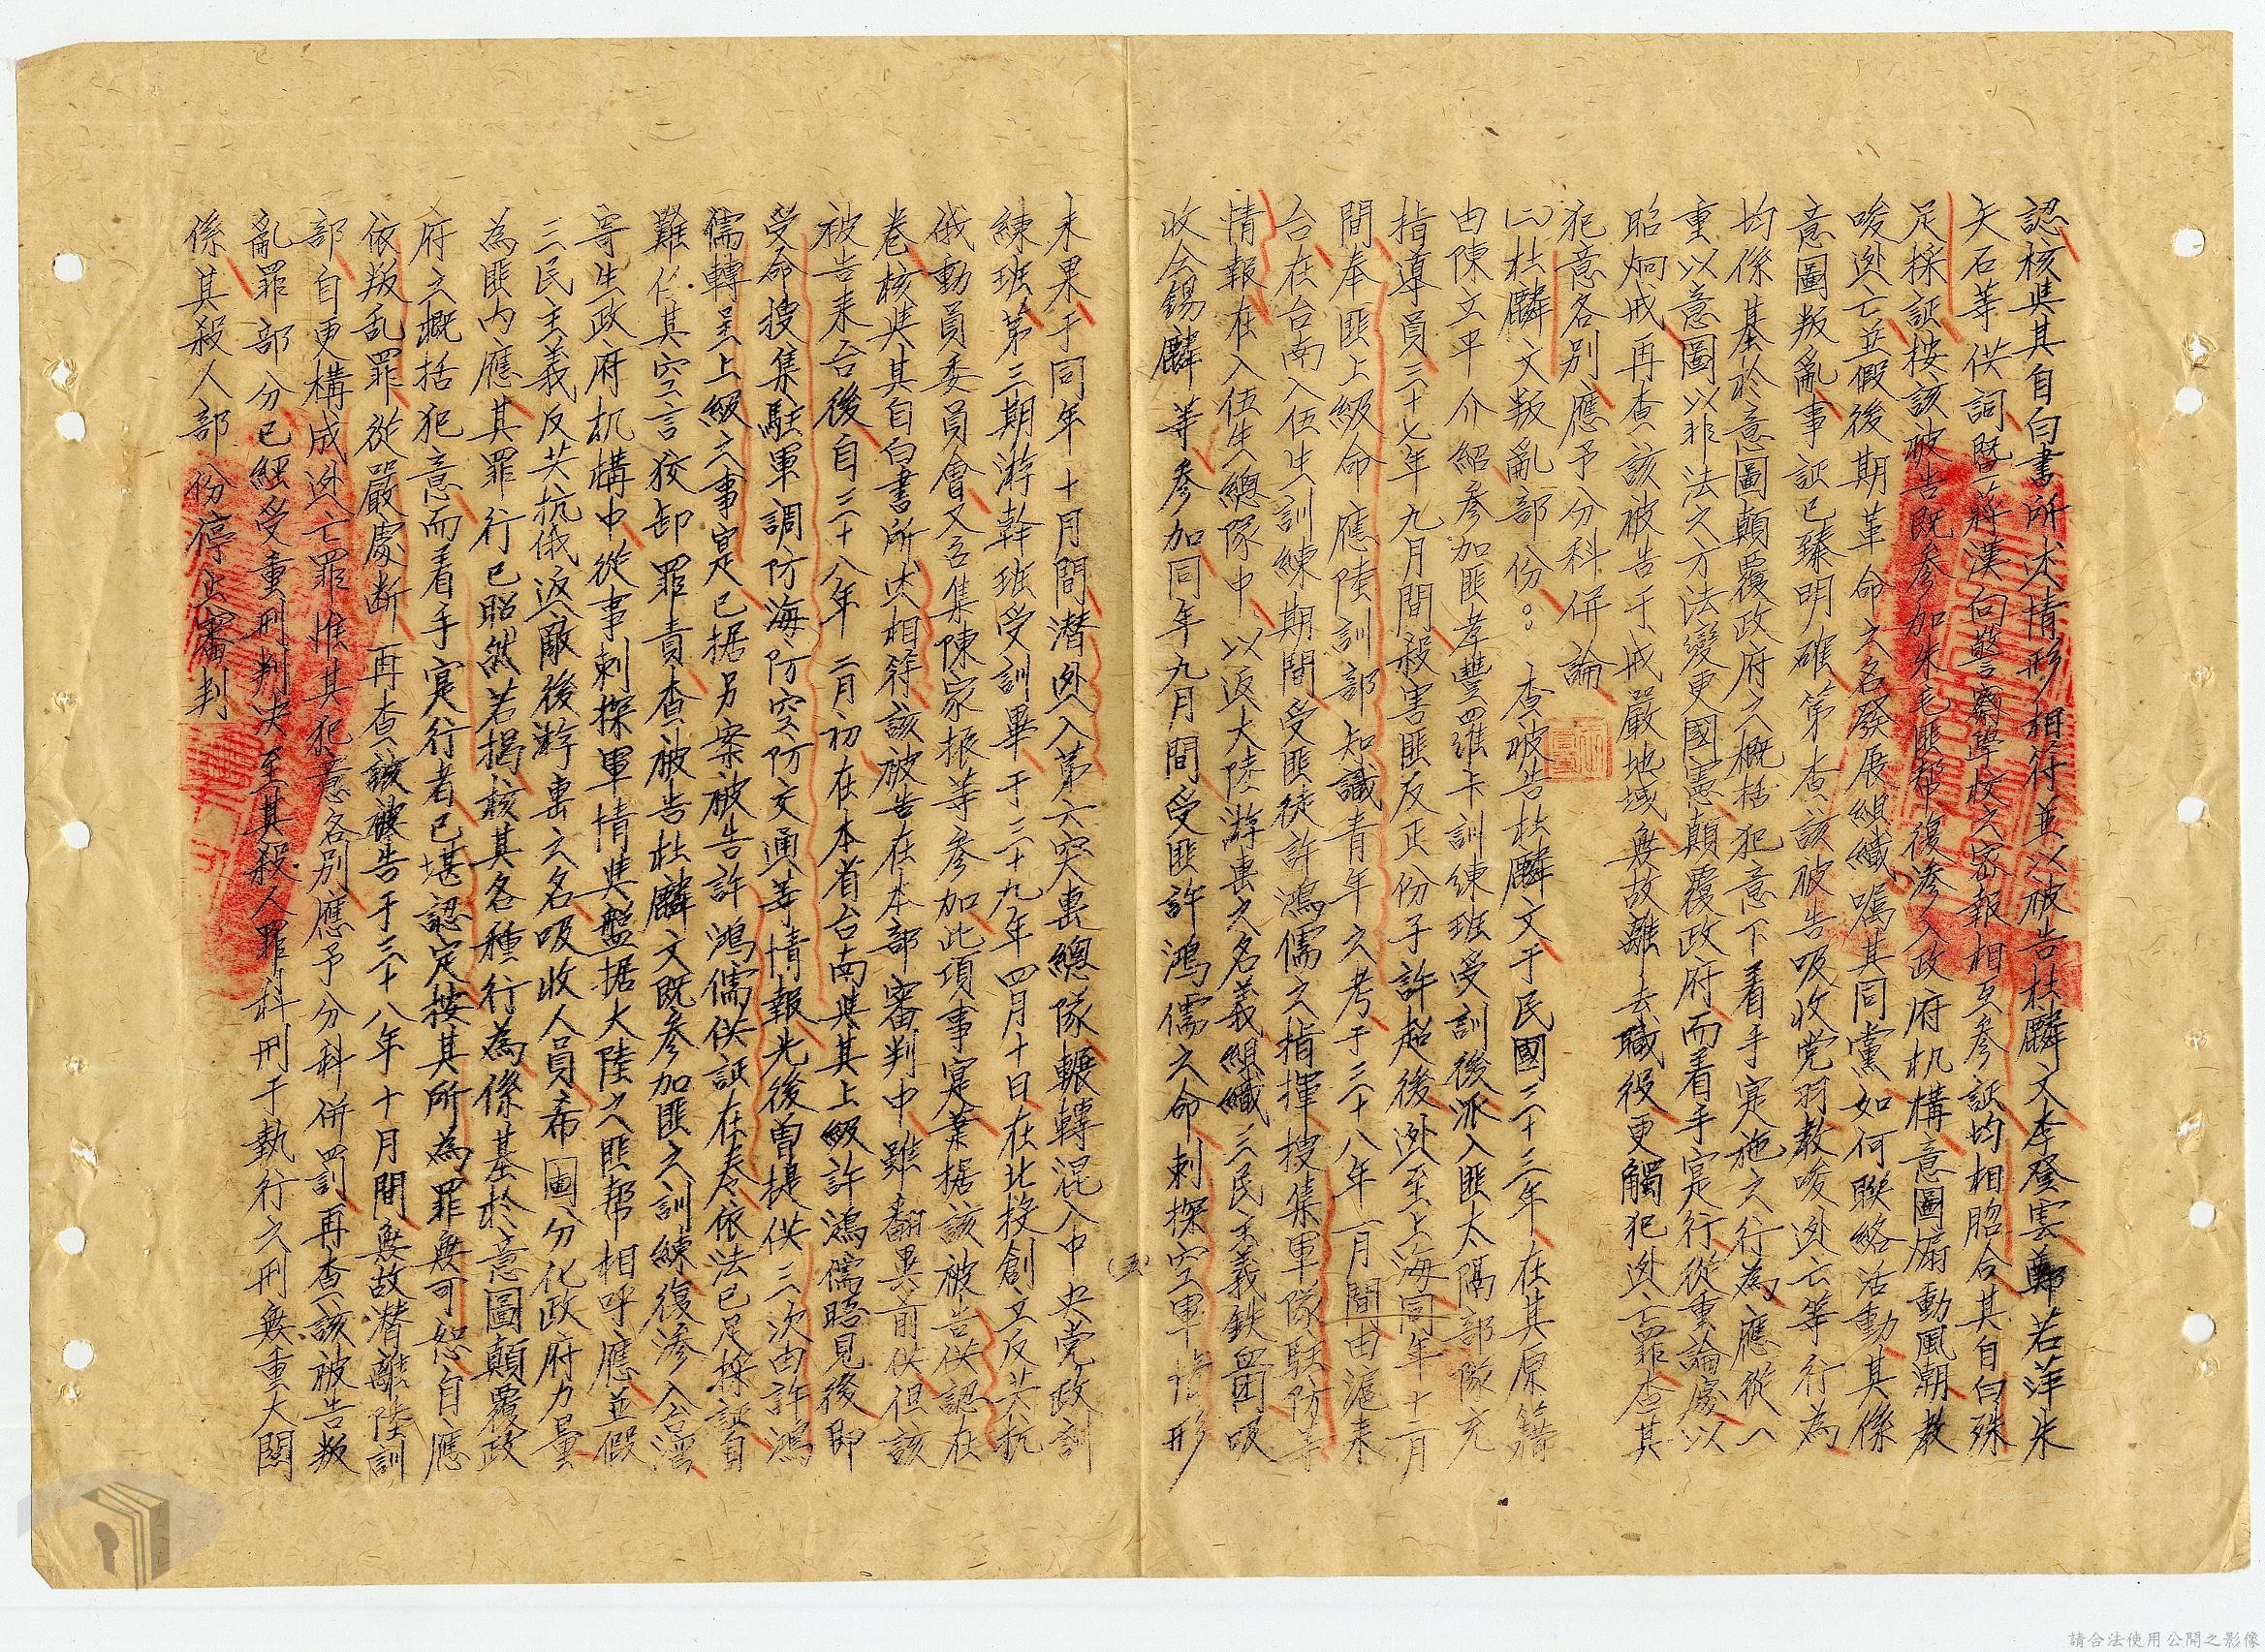 認核與其自白書所述情形相符並以被告杜麟文李登雲鄭若萍朱
矢石等供詞暨蔣漢向警察學校之密報相互參証均相脗合其自白殊
足採証按該被告既參加朱毛匪幫復滲入政府机構意圖煽動風潮教
唆逃亡並假後期革命之名發展組織囑其同黨如何聯絡活動其係
意圖叛亂事証已臻明確第查該被告吸收党羽教唆逃亡等行為
均係基於意圖顛覆政府之概括犯意下着手实施之行為應從一
重以意圖以非法之方法變更國憲顛覆政府而着手实行從重論處以
昭炯戒再查該被告于戒嚴地域無故離去職役更觸犯逃亡罪查其
犯意各別應予分科併論
㈡杜麟文叛亂部份：查被告杜麟文于民國三十三年在其原籍
由陳立平介紹參加匪孝豐羅卡訓練班受訓後派入匪太隔部隊充
指導員三十七年九月間殺害匪反正份子許超後逃至上海同年十二月
間奉匪上級命應陸訓部知識青年之考于三十八年一月間由滬来
台在台南入伍生訓練期間受匪徒許鴻儒之指揮搜集軍隊駐防等
情報在入伍生總隊中以返大陸游击之名義組織三民主義鉄血团吸
收仝錫麟等參加同年九月間受匪許鴻儒之命刺探空軍情形
(五)
未果于同年十月間潜逃入第六突击總隊輾轉混入中央党政劄
練班第三期游幹班受訓畢于三十九年四月十日在北投創立反共抗
俄動員委員會又召集陳家振等參加此項事实業据該被告供認在
卷核與其自白書所述相符該被告在本部審判中雖翻異前供但該
被告来台後自三十八年二月初在本省台南與其上級許鴻儒晤見後即
受命搜集駐軍調防海防空防交通等情報先後曾提供三次由許鴻
儒轉呈上級之事实已据另案被告許鴻儒供証在卷依法已足採証自
難任其空言狡卸罪責查被告杜麟文既參加匪之訓練復滲入台湾
寄生政府机構中從事刺探軍情與盤据大陸之匪帮相呼應並假
三民主義反共抗俄返敵後游击之名吸收人員希圖分化政府力量
為匪內應其罪行已昭然若揭核其各種行為係基於意圖顛覆政
府之概括犯意而着手实行者已堪認定按其所為罪無可恕自應
依叛乱罪從嚴處断再查該被告于三十八年十月間無故潜離陸訓
部自更構成逃亡罪惟其犯意各別應予分科併罰再查該被告叛
亂罪部分已經受重刑判決至其殺人罪科刑于執行之刑無重大関
係其殺人部份停止審判